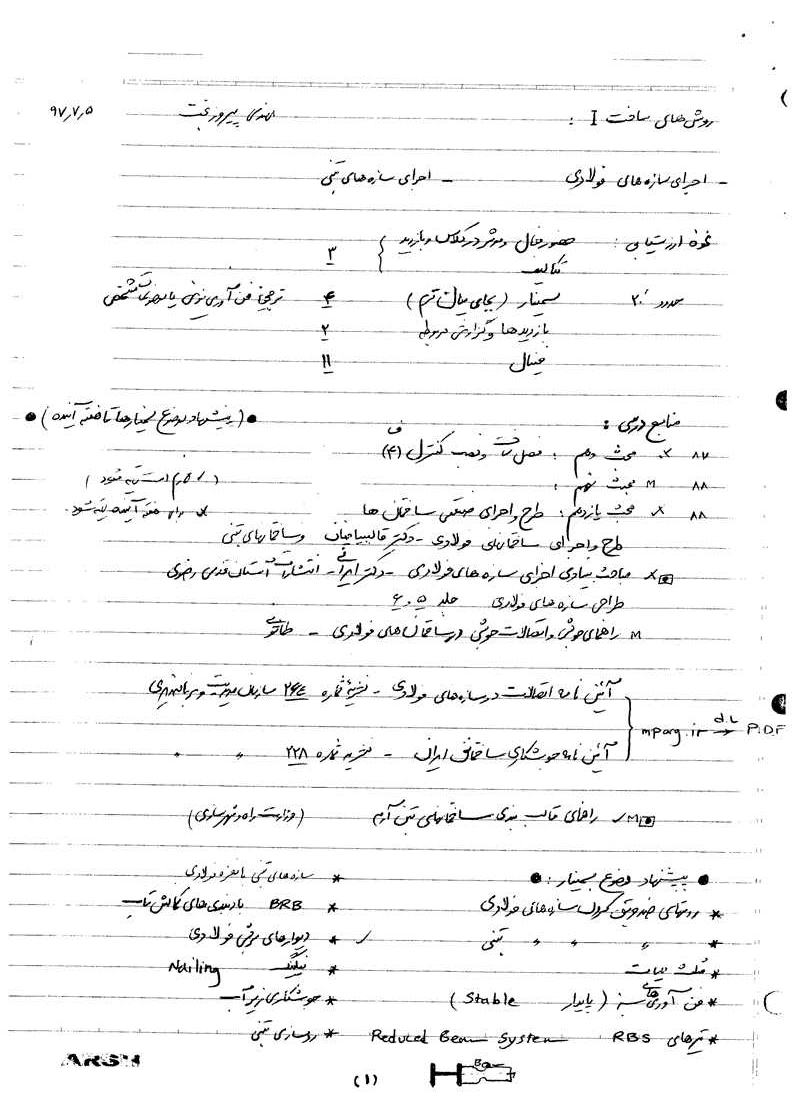 روش های ساخت I : مهندس پیروزبخت ۹۷٫۷٫۵
- اجرای سازه های فولادی - اجرای سازه های بتنی
نحوه ارزشیابی : حضور فعال و موثر در کلاس و بازدید
تکالیف } ۳
نمره از ۲۰: سمینار (بجای میان ترم) ۴ ترجیحا فن آوری نوین یا موضوعات مشخص
بازدیدها و گزارش مربوطه ۲
فینال ۱۱
منابع درسی : ● (پیشنهاد موضوع سمینارها تا هفته آینده) ●
۸۷ × مبحث دهم : فصل ساخت و نصب کنترل (۴)
۸۸ M مبحث نهم : (لازم است تهیه شود)
۸۸ × مبحث یازدهم : طرح و اجرای صنعتی ساختمان ها × برای هفته آینده تهیه شود.
طرح و اجرای ساختمانهای فولادی - دکتر قالیبافیان و ساختمانهای بتنی
× مباحث بنیادی اجرای سازه های فولادی - دکتر ایرانی - انتشارات آستان قدس رضوی
طراحی سازه های فولادی جلد ۵ و ۶
M راهنمای جوش و اتصالات جوشی در ساختمان های فولادی - طاحونی
آئین نامه اتصالات در سازه های فولادی - نشریه شماره ۲۶۴ سازمان مدیریت و برنامه‌ریزی
} mporg.ir d.L → P.D.F
آئین نامه جوشکاری ساختمانی ایران - نشریه شماره ۲۲۸ " "
M✓ راهنمای قالب بندی ساختمانهای بتن آرمه (وزارت راه و شهرسازی)
● پیشنهاد موضوع سمینار : ●
* روشهای ضد حریق کردن سازه های فولادی
* " " " بتنی
* پلنت بیات
* فن آوری های سبز (پایدار Stable)
* تیرهای RBS Reduced Beam System
* سازه های بتنی با مغزه فولادی
* BRB بادبندی های کمانش تاب
✓ * دیوارهای برشی فولادی
* نیلینگ Nailing
* جوشکاری زیر آب
* روسازی بتنی
ARSH
(۱)